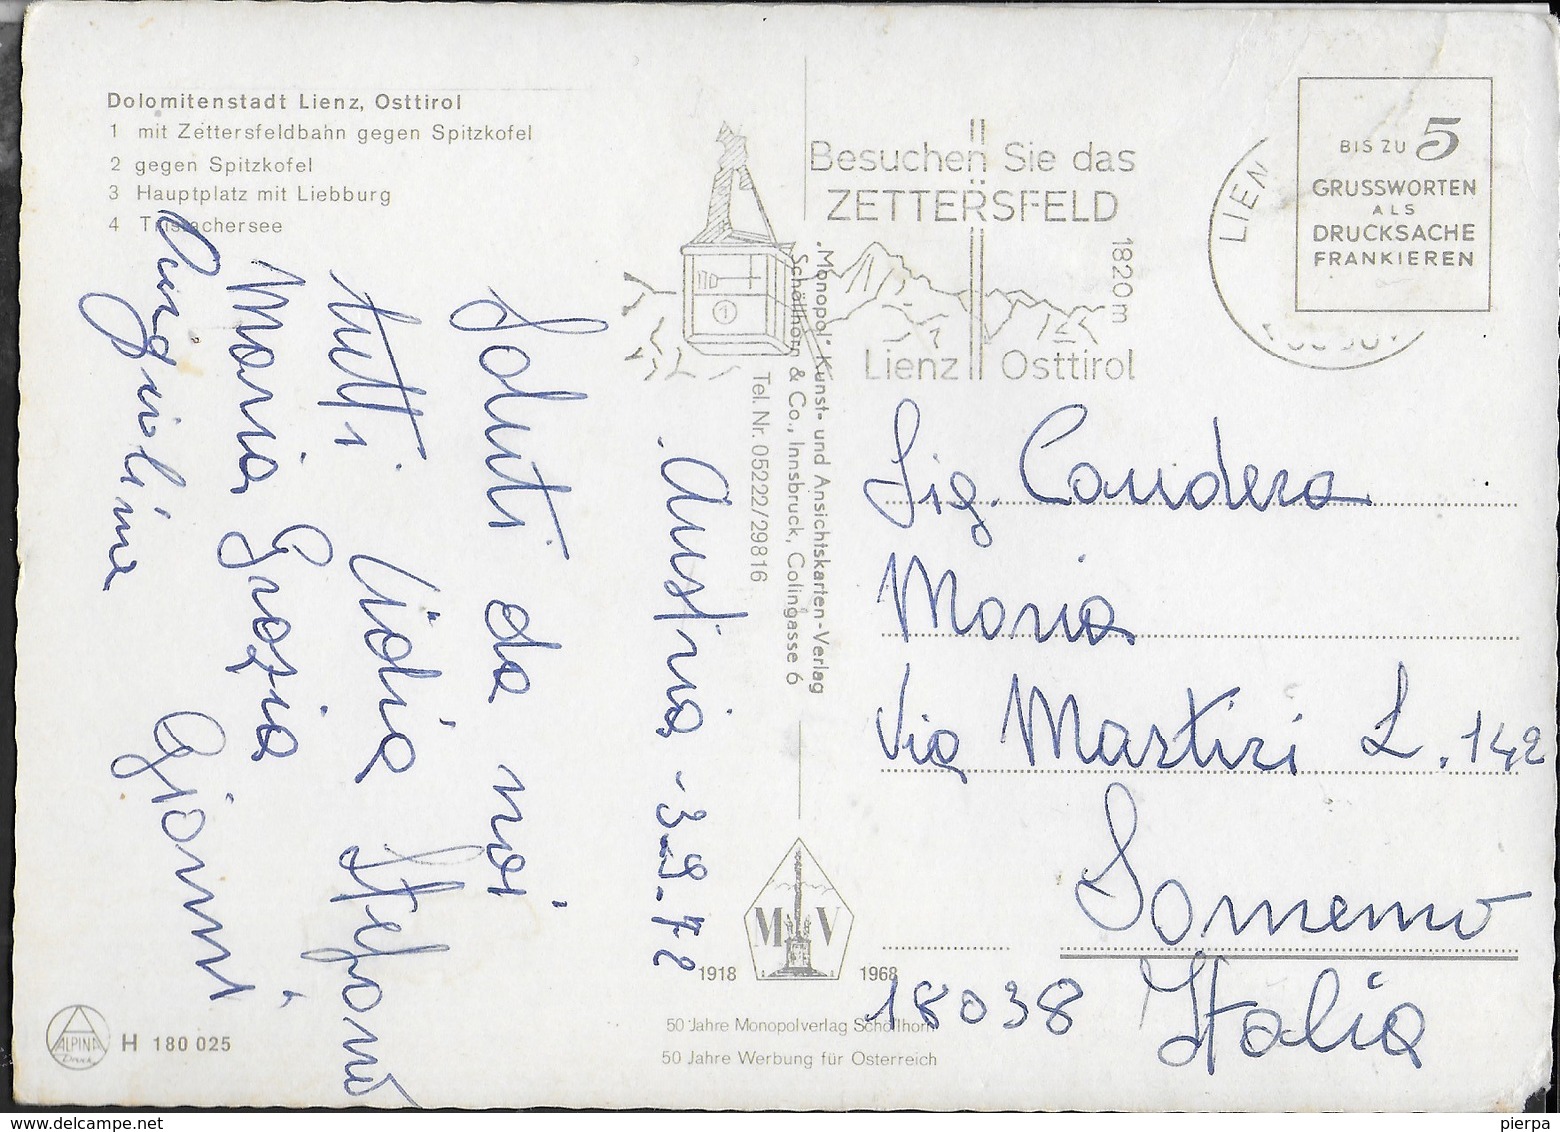 Dolomitenstadt Lienz, Osttirol
1 mit Zettersfeldbahn gegen Spitzkofel
2 gegen Spitzkofel
3 Hauptplatz mit Liebburg
4 Tristachersee
Besuchen Sie das
ZETTERSFELD
1820m
Lienz Osttirol
1
LIEN
BIS ZU 5
GRUSSWORTEN
ALS
DRUCKSACHE
FRANKIEREN
"Monopol" Kunst- und Ansichtskarten-Verlag
Schöllhorn & Co., Innsbruck, Colingasse 6
Tel. Nr. 05222/29816
Austria - 3-9-72
Saluti da noi
tutti Lidia Stefano
Maria Grazia
Angiolina Gianni
Sig. Candera
Maria
Via Martiri L. 142
Sanremo
18038 Italia
M V
1918 1968
50 Jahre Monopolverlag Schöllhorn
50 Jahre Werbung für Österreich
ALPINA
Druck
H 180 025
delcampe.net
pierpa